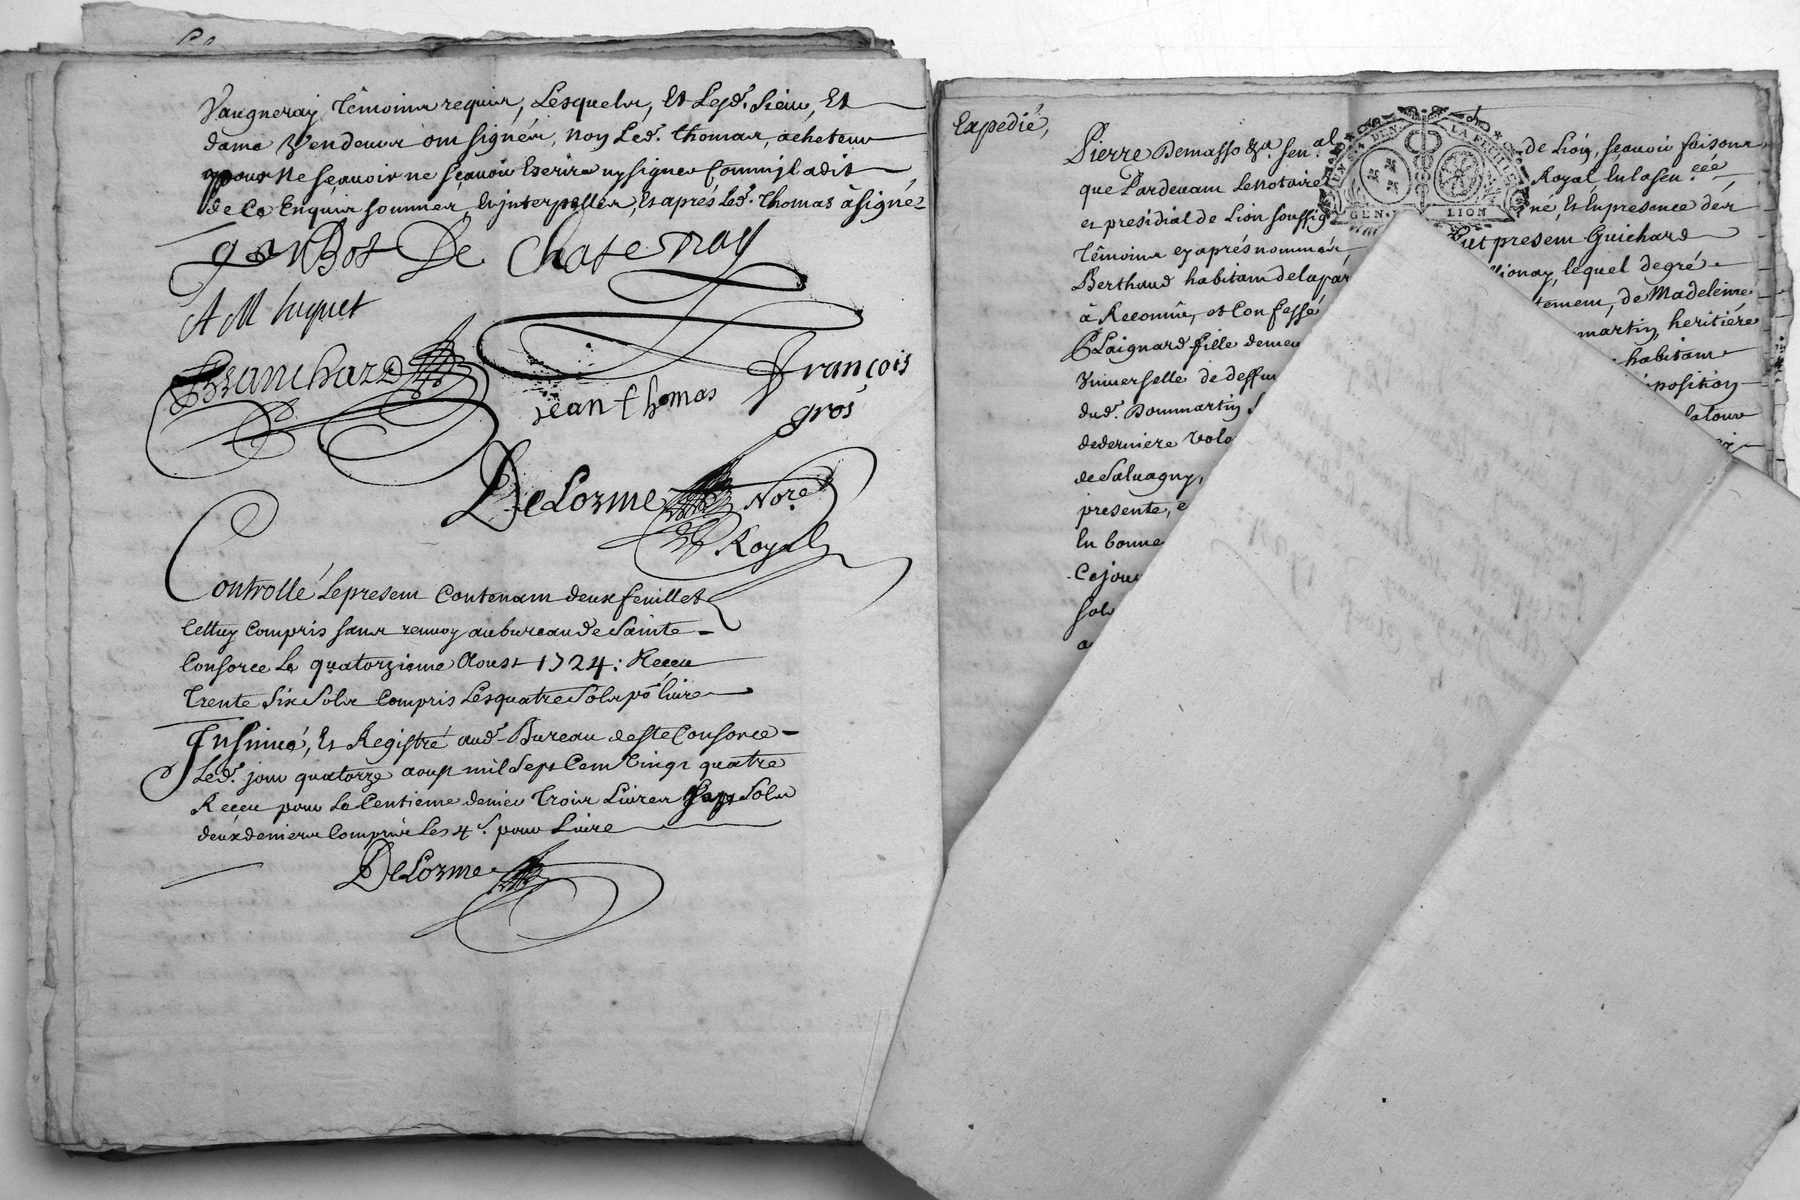 Vaugneray Témoins requis, Lesquels, Et Lesd. Sieur, Et
dame Vendeurs ont signés, non Led. thomas, acheteur
pour ne sçavoir Escrire ny signer comm'jl a dit
de Ce Enquis sommer, Et jnterpeller, Et aprés Led. Thomas à signé
De Chatenay
A M huguet
Blanchard
jean thomas
françois
gros
DeLorme Nore.
Royal
Controllé Le present Contenant deux feuillets
Celluy Compris sans renvoy au bureau de Sainte
Consorce Le quatorzieme Aoust 1724: Receu
trente Six Sols Compris Les quatre Sols po. livre
Jnsinué, Et Registré aud. Bureau de Ste Consorce
Led. jour quatorze aoust mil Sept Cent Vingt quatre
Receu pour Le Centieme denier trois Livres Sols
deux deniers Compris Les 4 s. pour Livre
DeLorme
Expedié,
Pierre Demasso &a. sen.al de Lion, sçavoir faisons
que Pardevant Le Notaire Royal En la sen.ceé
et presidial de Lion soussigné, Et En presence des
Témoins cy aprés nommés fut present Guichard
Berthaud habitant de la par llionay, lequel de gré
à Reconnu, et Confessé tement, de Madeleine
Plaignard fille demeu martin, heritiére
Vniverselle de deffun habitant
dud. Dommartin position
de derniere Volo la tour
de Salvagny,
presente, e
En bonne
Ce jour
sols
GEN. LION